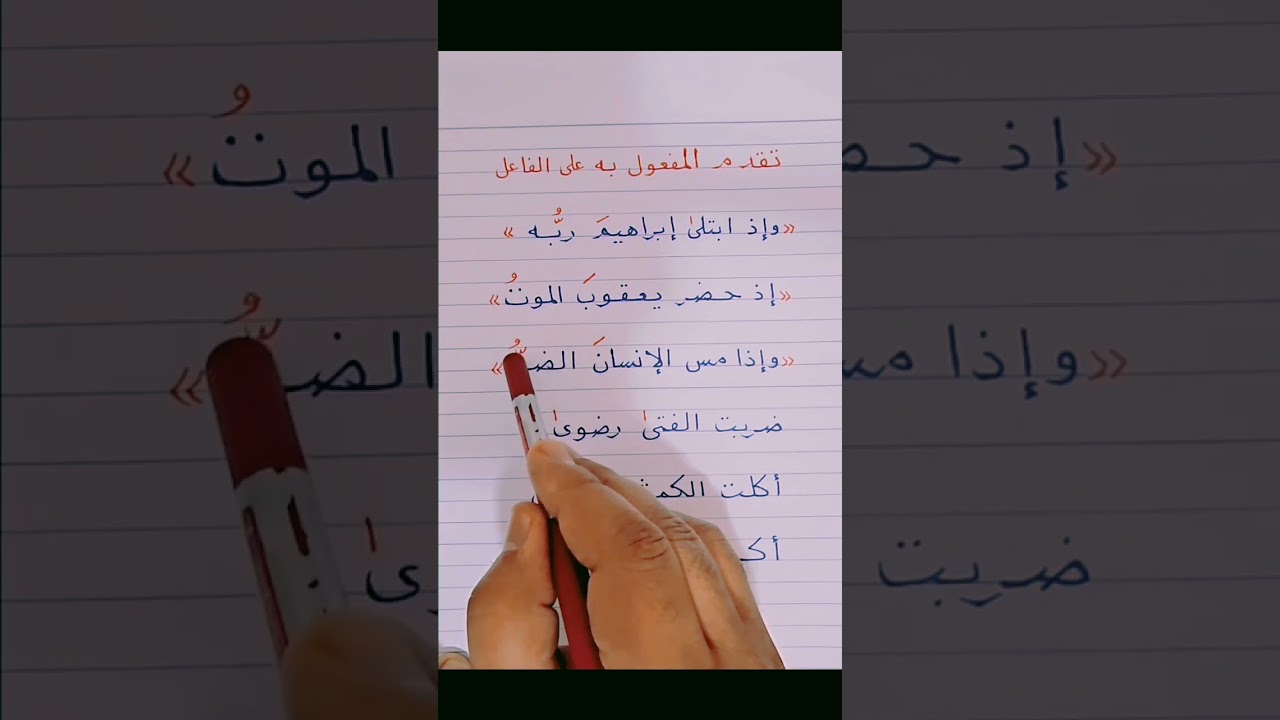 تقدم المفعول به على الفاعل
«وإذ ابتلىٰ إبراهيمَ ربُّه»
«إذ حضر يعقوبَ الموتُ»
«وإذا مس الإنسانَ الضرُّ»
ضربت الفتىٰ رضوىٰ !
أكلت